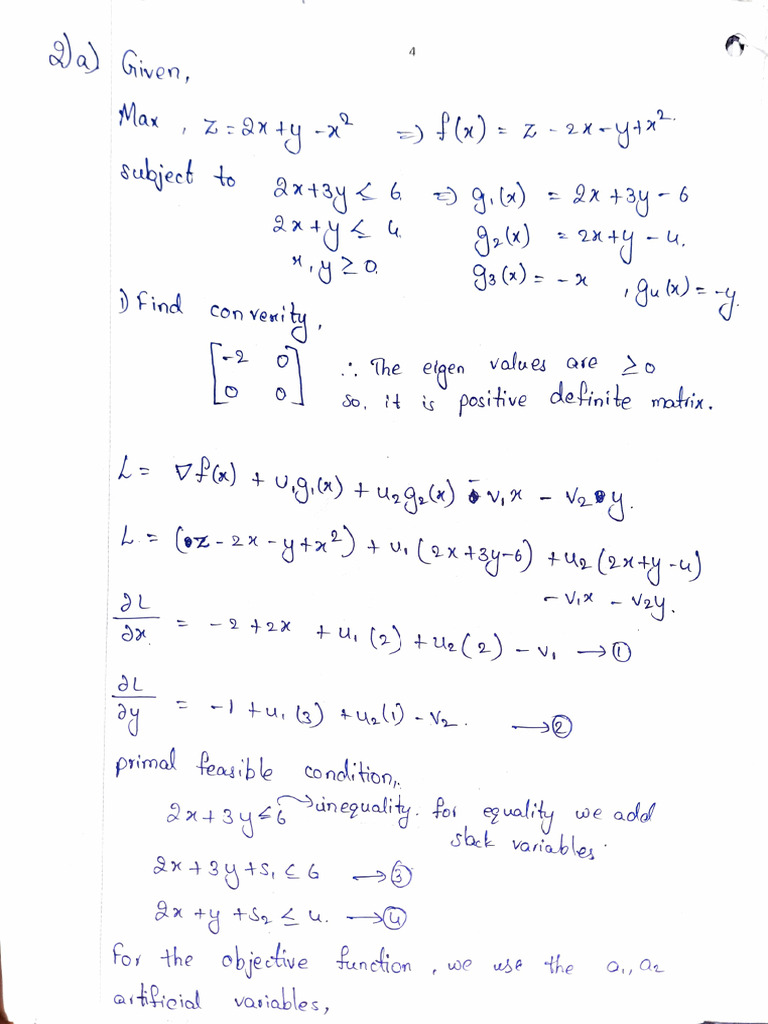 4
2)a) Given,
Max, z = 2x + y - x² => f(x) = z - 2x - y + x².
subject to 2x+3y ≤ 6 => g₁(x) = 2x + 3y - 6
2x + y ≤ 4. g₂(x) = 2x+y - 4.
x, y ≥ 0. g₃(x) = - x , g₄(x) = -y.
1) Find convexity,
[-2 0
0 0] ∴ The eigen values are ≥ 0
so, it is positive definite matrix.
L = ∇f(x) + u₁g₁(x) + u₂g₂(x) - v₁x - v₂y.
L = (z - 2x - y + x²) + u₁(2x+3y-6) + u₂(2x+y-4)
- v₁x - v₂y.
∂L/∂x = -2 + 2x + u₁(2) + u₂(2) - v₁ → ①
∂L/∂y = -1 + u₁(3) + u₂(1) - v₂. → ②
primal feasible condition,
2x + 3y ≤ 6 → inequality. for equality we add
slack variables.
2x + 3y + s₁ ≤ 6 → ③
2x + y + s₂ ≤ 4. → ④
For the objective function, we use the a₁, a₂
artificial variables,